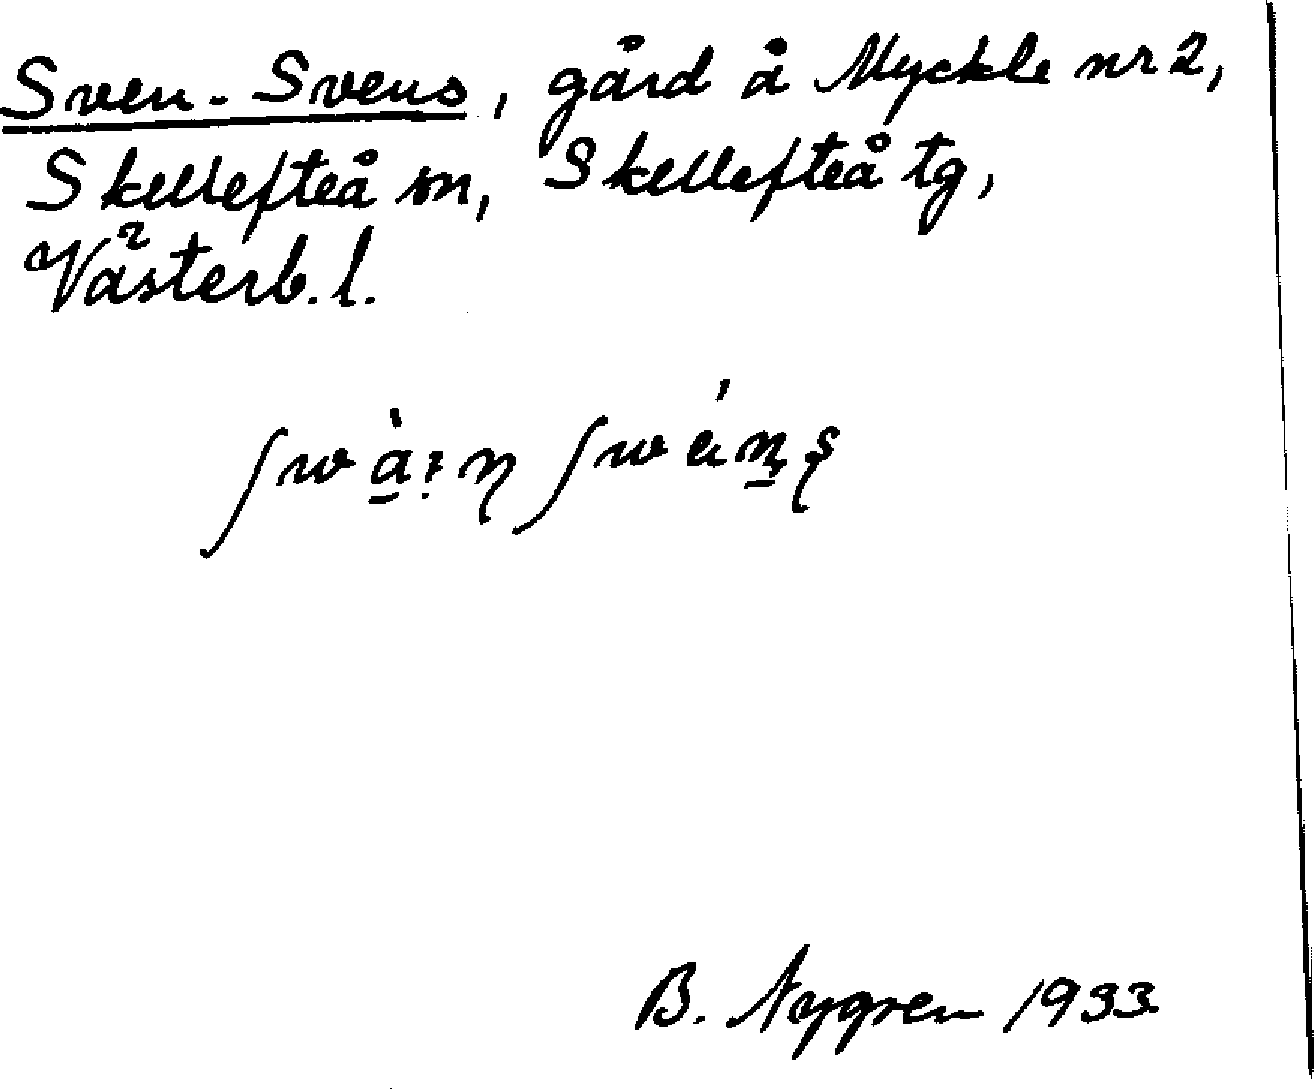 Sven-Svens, gård å Myckle nr 2,
Skellefteå sn, Skellefteå tg,
Västerb. l.
B. Nygren 1933.